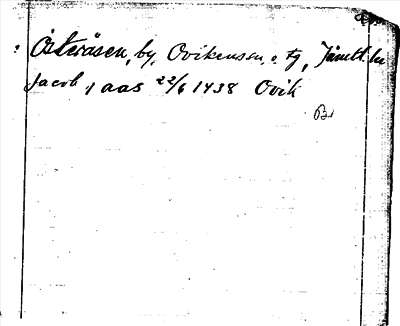 Österåsen, by, Ovikenssn. o. tg, Jämtl. ln
Jacob j aas 22/6 1438 Ovik